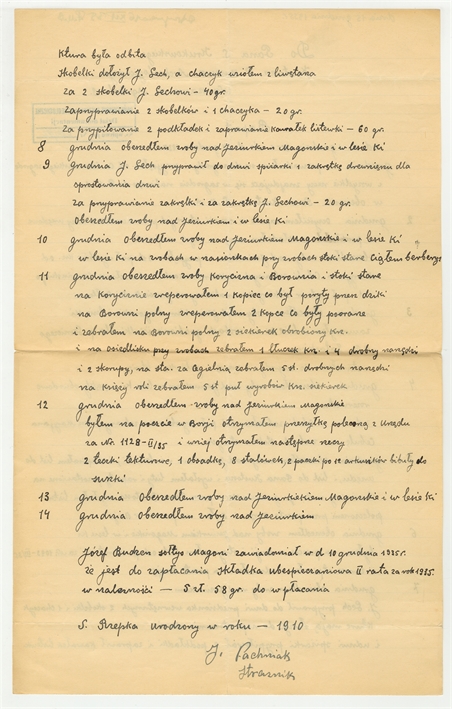 Ktura była odbita
Skobelki dołożył J. Sech, a chaczyk wziołem z liwstana
za 2 skobelki J. Sechowi – 40 gr.
zaprzyprawianie 2 skobelków i 1 chaczyka – 20 gr.
Za przypiłowanie 2 podkładek i zaprawianie kawałek listewki – 60 gr.
8 grudnia obeszedłem zroby nad Jeziurkiem Magońskie i w lesie Ki
9 grudnia J. Sech przyprawił do drzwi spiżarki 1 zakrętkę drewnianą dla
oprostowania drzwi
za przyprawianie zakrętki i za zakrętkę J. Sechowi – 20 gr.
Obeszedłem zroby nad Jeziurkiem i w lesie Ki
10 grudnia Obeszedłem zroby nad Jeziurkiem Magońskie i w lesie Ki
w lesie Ki na zrobach w nasionkach przy zrobach stoki stare Ciąłem berberys
11 grudnia obeszedłem zroby Korycizna i Borownia i stoki stare
na Koryciźnie zreperowałem 1 kopiec co był poryty przez dziki
na Borowni polny zreperowałem 2 kopce co były poorane
i zebrałem na Borowni polny 2 siekierek obrobiony Krz.
i na osiedlisku przy zrobach zebrałem 1 tłuczek Krz. i 4 drobny narzędzi
i 2 skorupy, na sta. za Cegielnią zebrałem 5 st. drobnych narzędzi
na Księży roli zebrałem 5 st puł wyrobów Krz. siekierek
12 grudnia obeszedłem zroby nad Jeziurkiem Magońskie
byłem na poczcie w Borji otrzymałem przesyłkę poleconą z Urzędu
za Nr. 1128-II/35 i w niej otrzymałem następne rzeczy
2 teczki tekturowe, 1 obsadkę, 8 stalówek, 2 paczki po 12 arkusików bibuły do
suszki
13 grudnia Obeszedłem zroby nad Jeziurkiem Magońskie i w lesie Ki
14 grudnia Obeszedłem zroby nad Jeziurkiem
Józef Budzen sołtys Magoni zawiadomiał w d 10 grudnia 1935 r.
że jest do zapłacania Składka Ubezpieczaniowa II rata za rok 1935.
w należności – 5 zł. 58 gr. do wpłacania
S. Rzepka Urodzony w roku – 1910
J. Pachniak
Strażnik